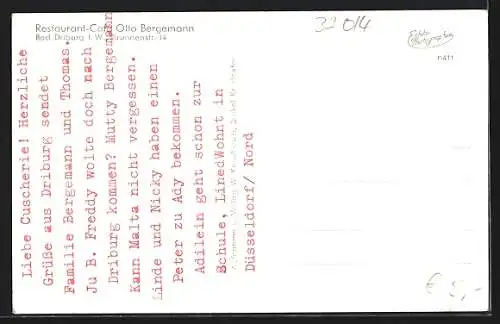 Restaurant-Café Otto Bergemann
Bad Driburg i. W., Brunnenstr. 14
32 014
Echte Photographie
n411
Liebe Cuscherie! Herzliche
Grüße aus Driburg sendet
Familie Bergemann und Thomas.
Ju B. Freddy wolte doch nach
Driburg kommen? Mutty Bergemann
Kann Malta nicht vergessen.
Linde und Nicky haben einen
Peter zu Ady bekommen.
Adilein geht schon zur
Schule, LinedWohnt in
Düsseldorf/ Nord
€ 5,-